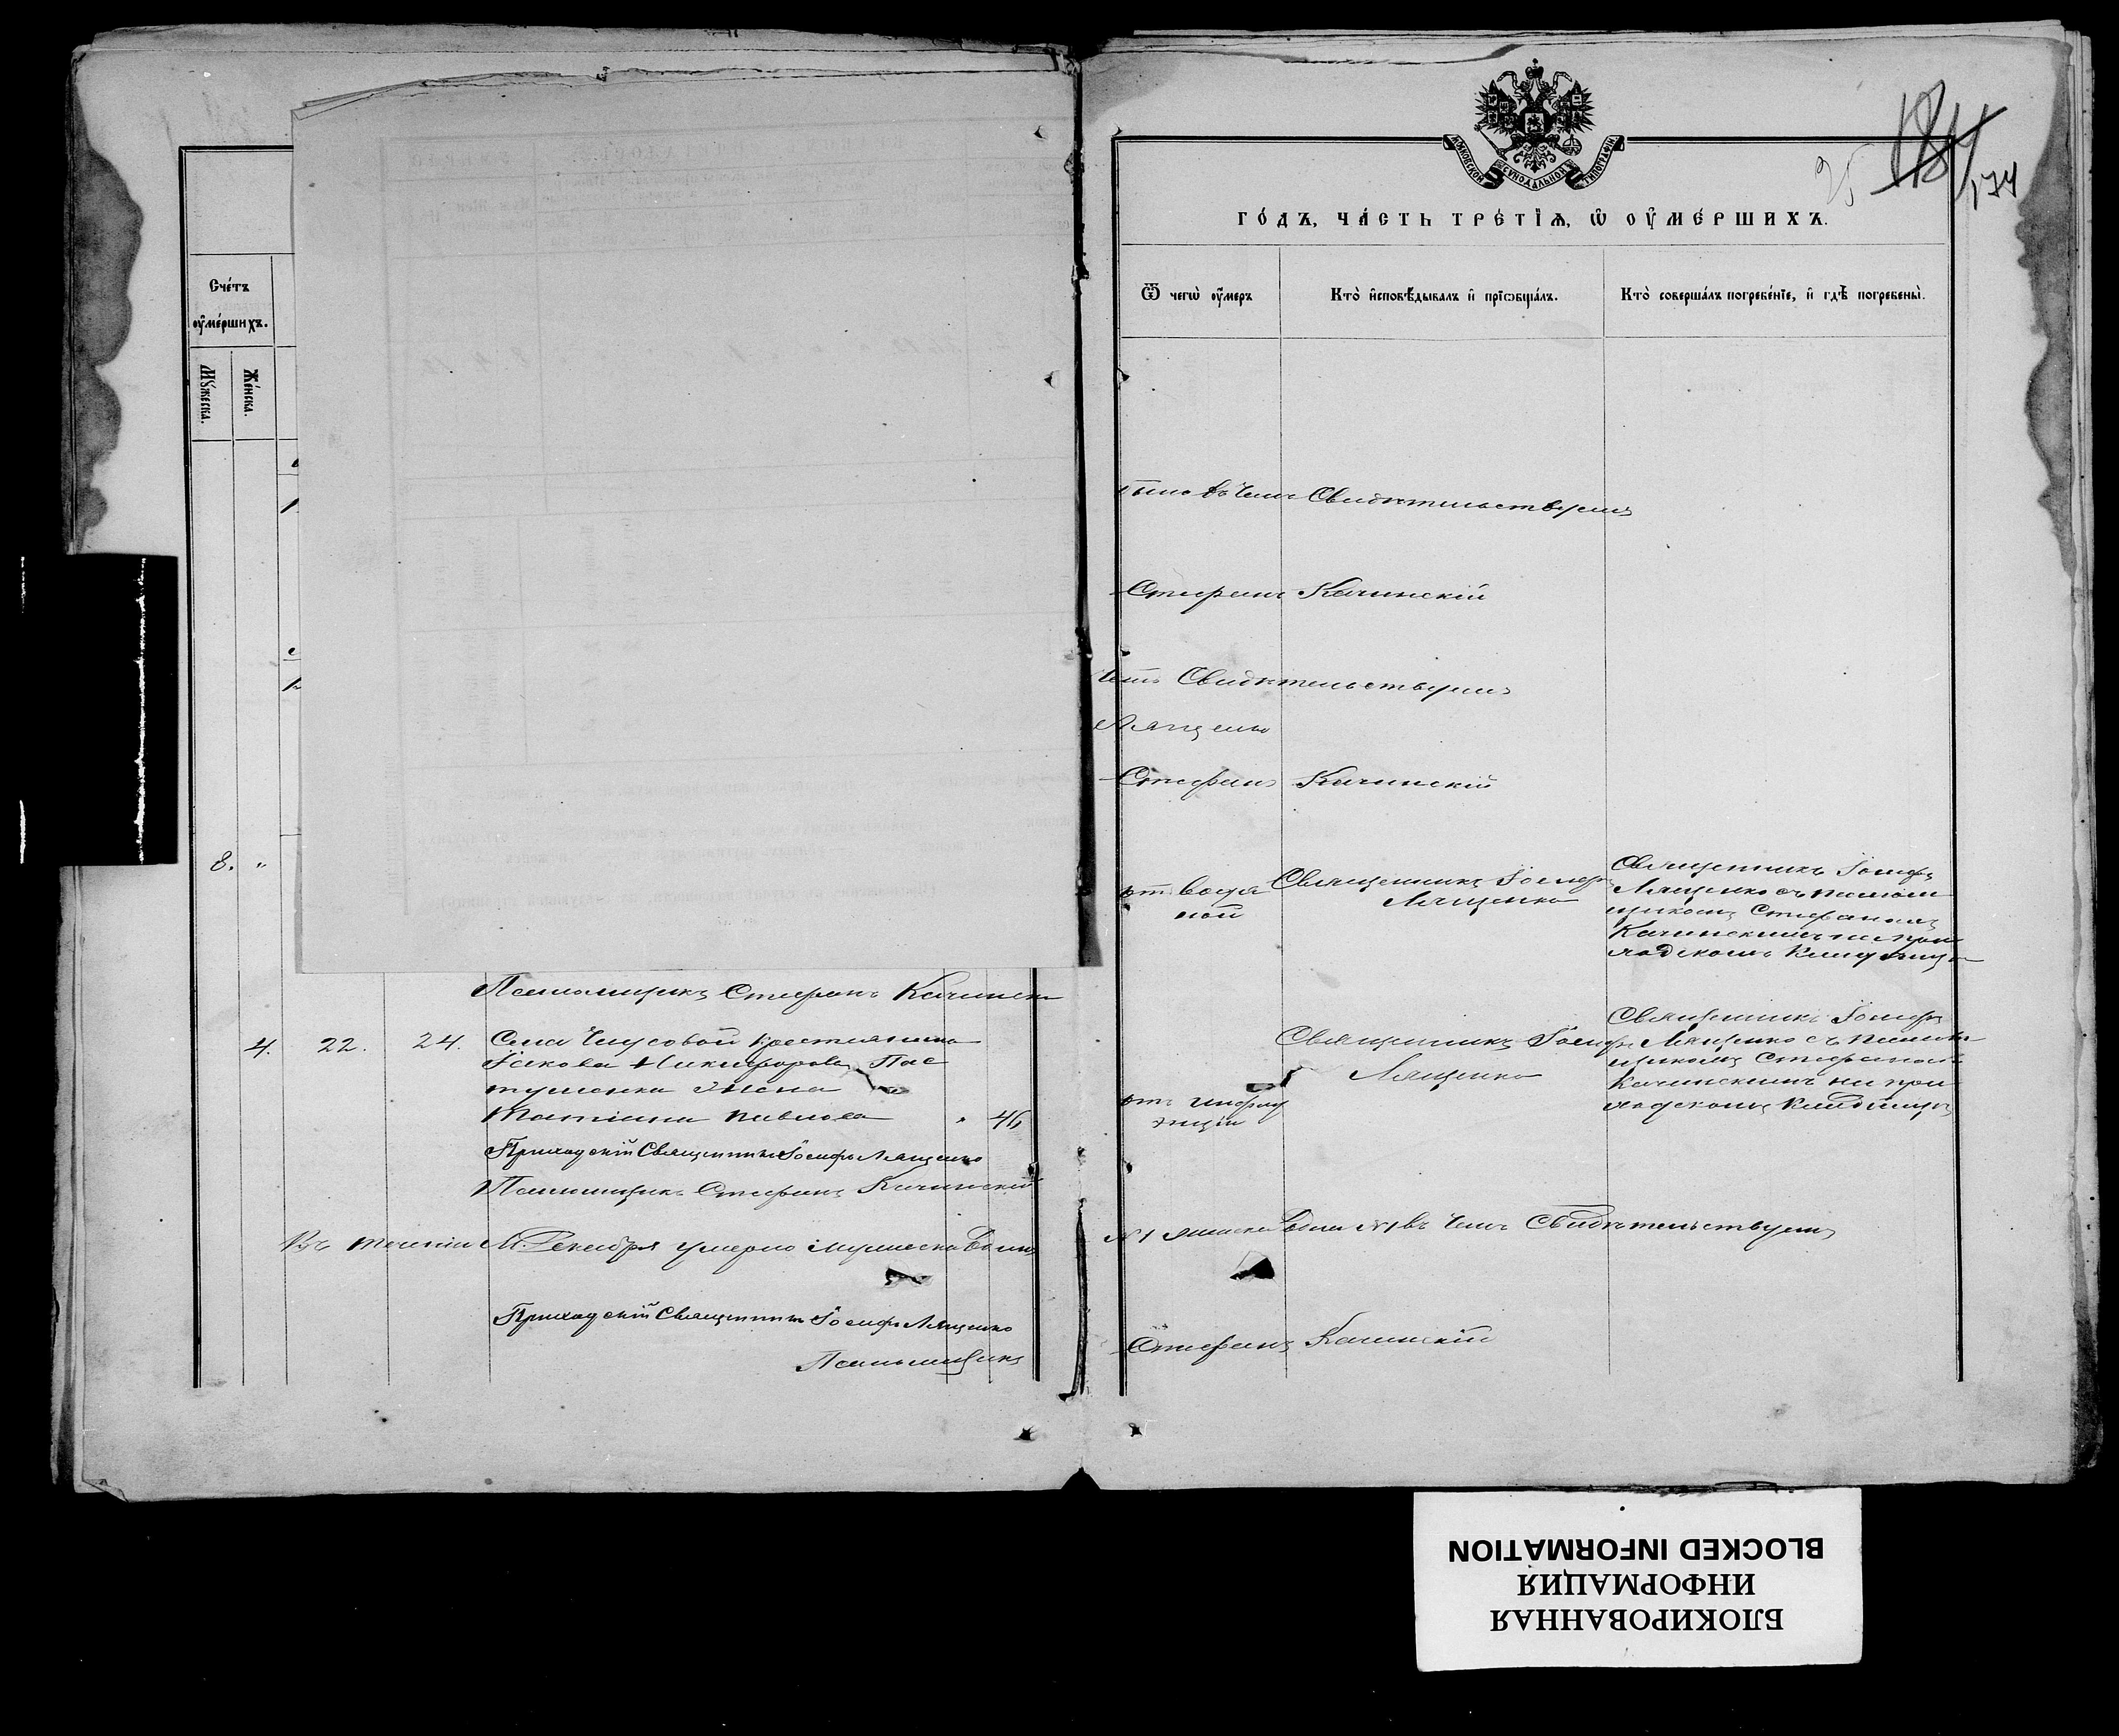 Счетъ
оумершихъ.
Мужеска.
Женска.
8. "
Псаломщикъ Стефанъ Качинскі
4. 22. 24. Села Чаусовой крестьянина
Іакова Никифорова Пас
тушенка жена
Татіана Павлова " 46
Приходскій Священникъ Іосифъ Лященко
Псаломщикъ Стефанъ Качинскій
Въ теченіи М. Декабря умерло мужеска пола
Приходскій Священникъ Іосифъ Лященко
Псаломщикъ
МОСКОВСКОЙ СѴНОДАЛЬНОЙ ТИПОГРАФІИ
25 184 174
ГО́ДЪ, ЧА́СТЬ ТРЕ́ТІѦ, Ѡ ОУМЕ́РШИХЪ.
Ѿ чегѡ оумеръ
Кто исповѣдывалъ и прїѡбщалъ.
Кто совершалъ погребенїе, и гдѣ погребены.
въ чемъ Свидѣтельствуемъ
Стефанъ Качинскій
чемъ Свидѣтельствуемъ
Лященко
Стефанъ Качинскій
от водя
ной
Священникъ Іосифъ
Лященко
Священникъ Іосифъ
Лященко съ псалом
щикомъ Стефаномъ
Качинскимъ на при
ходскомъ кладбищѣ
отъ
Священникъ Іосифъ
Лященко
Священникъ Іосифъ
Лященко съ псалом
щикомъ Стефаномъ
Качинскимъ на при
ходскомъ кладбищѣ
№ 1 женска пола № 1 въ чемъ Свидѣтельствуемъ
Стефанъ Качинскій
БЛОКИРОВАННАЯ
ИНФОРМАЦИЯ
BLOCKED INFORMATION